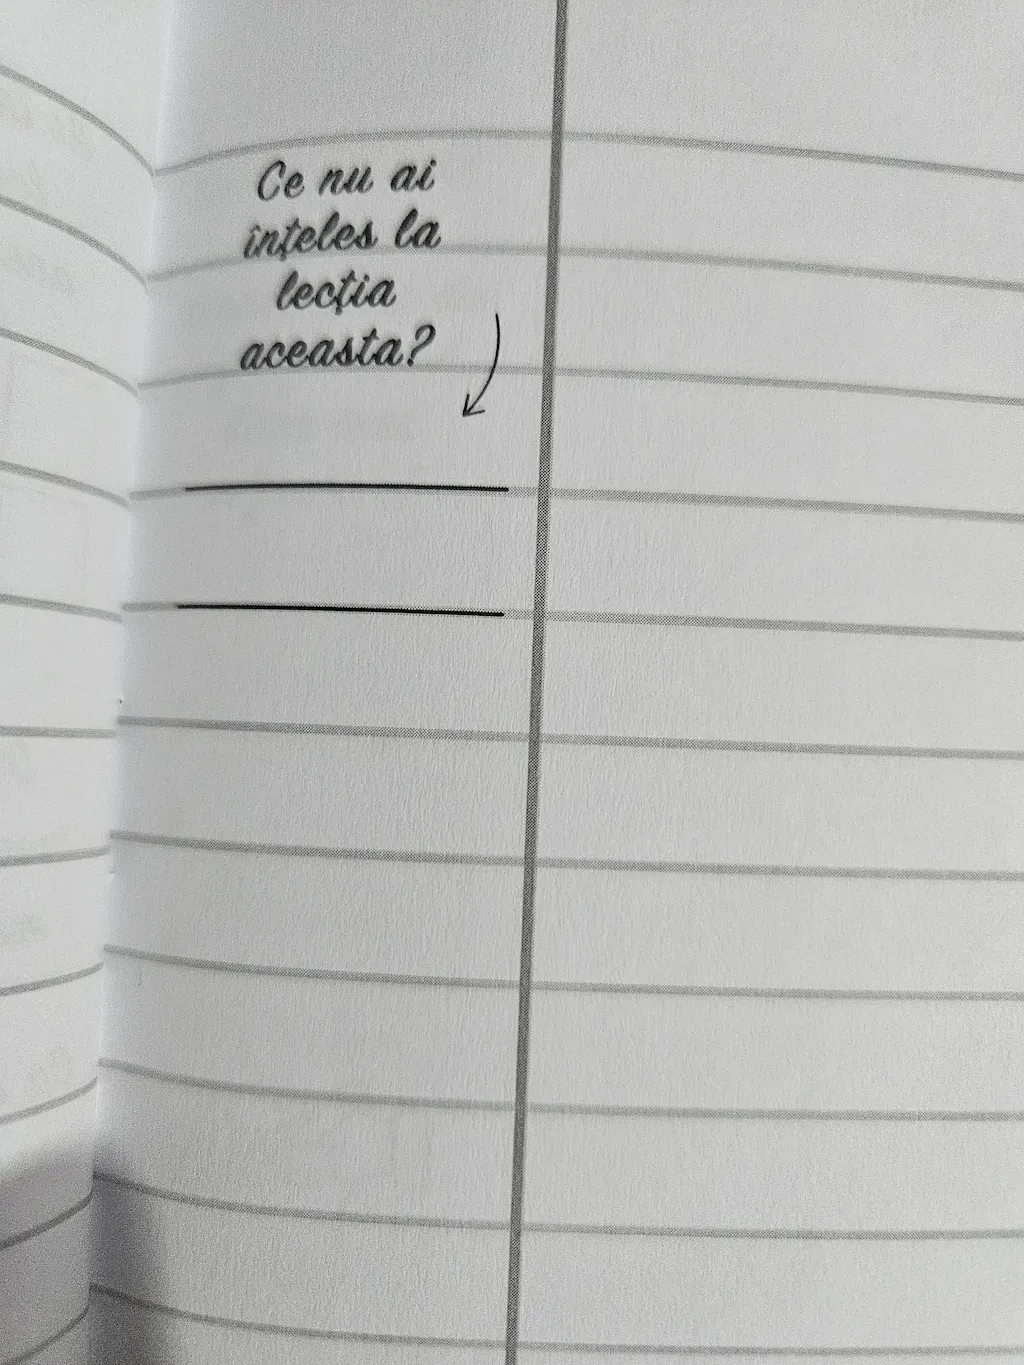 Ce nu ai
înțeles la
lecția
aceasta?